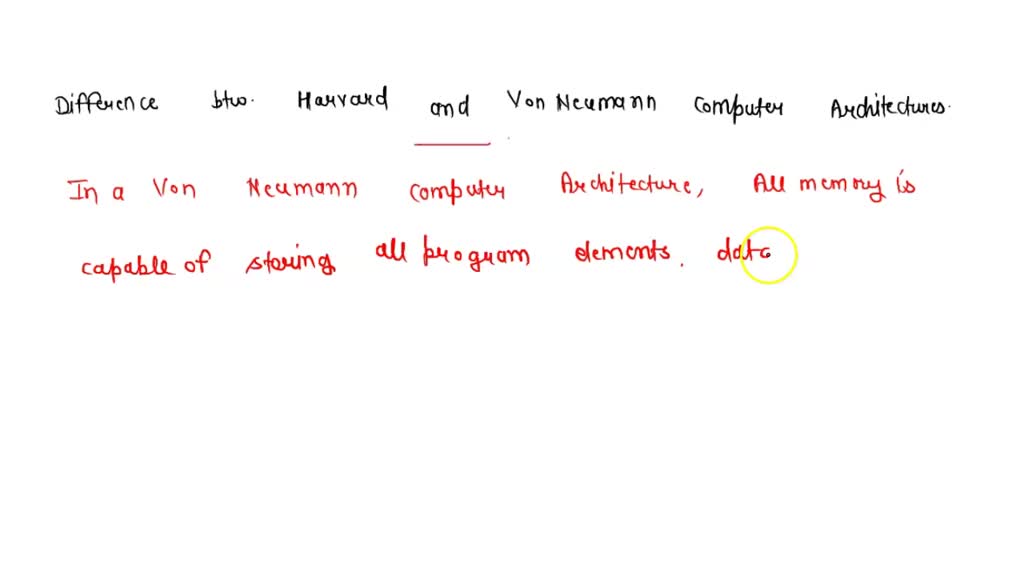 Difference btw. Harvard and Von Neumann Computer Architectures.
In a Von Neumann Computer Architecture, All memory is
capable of storing all program elements. data